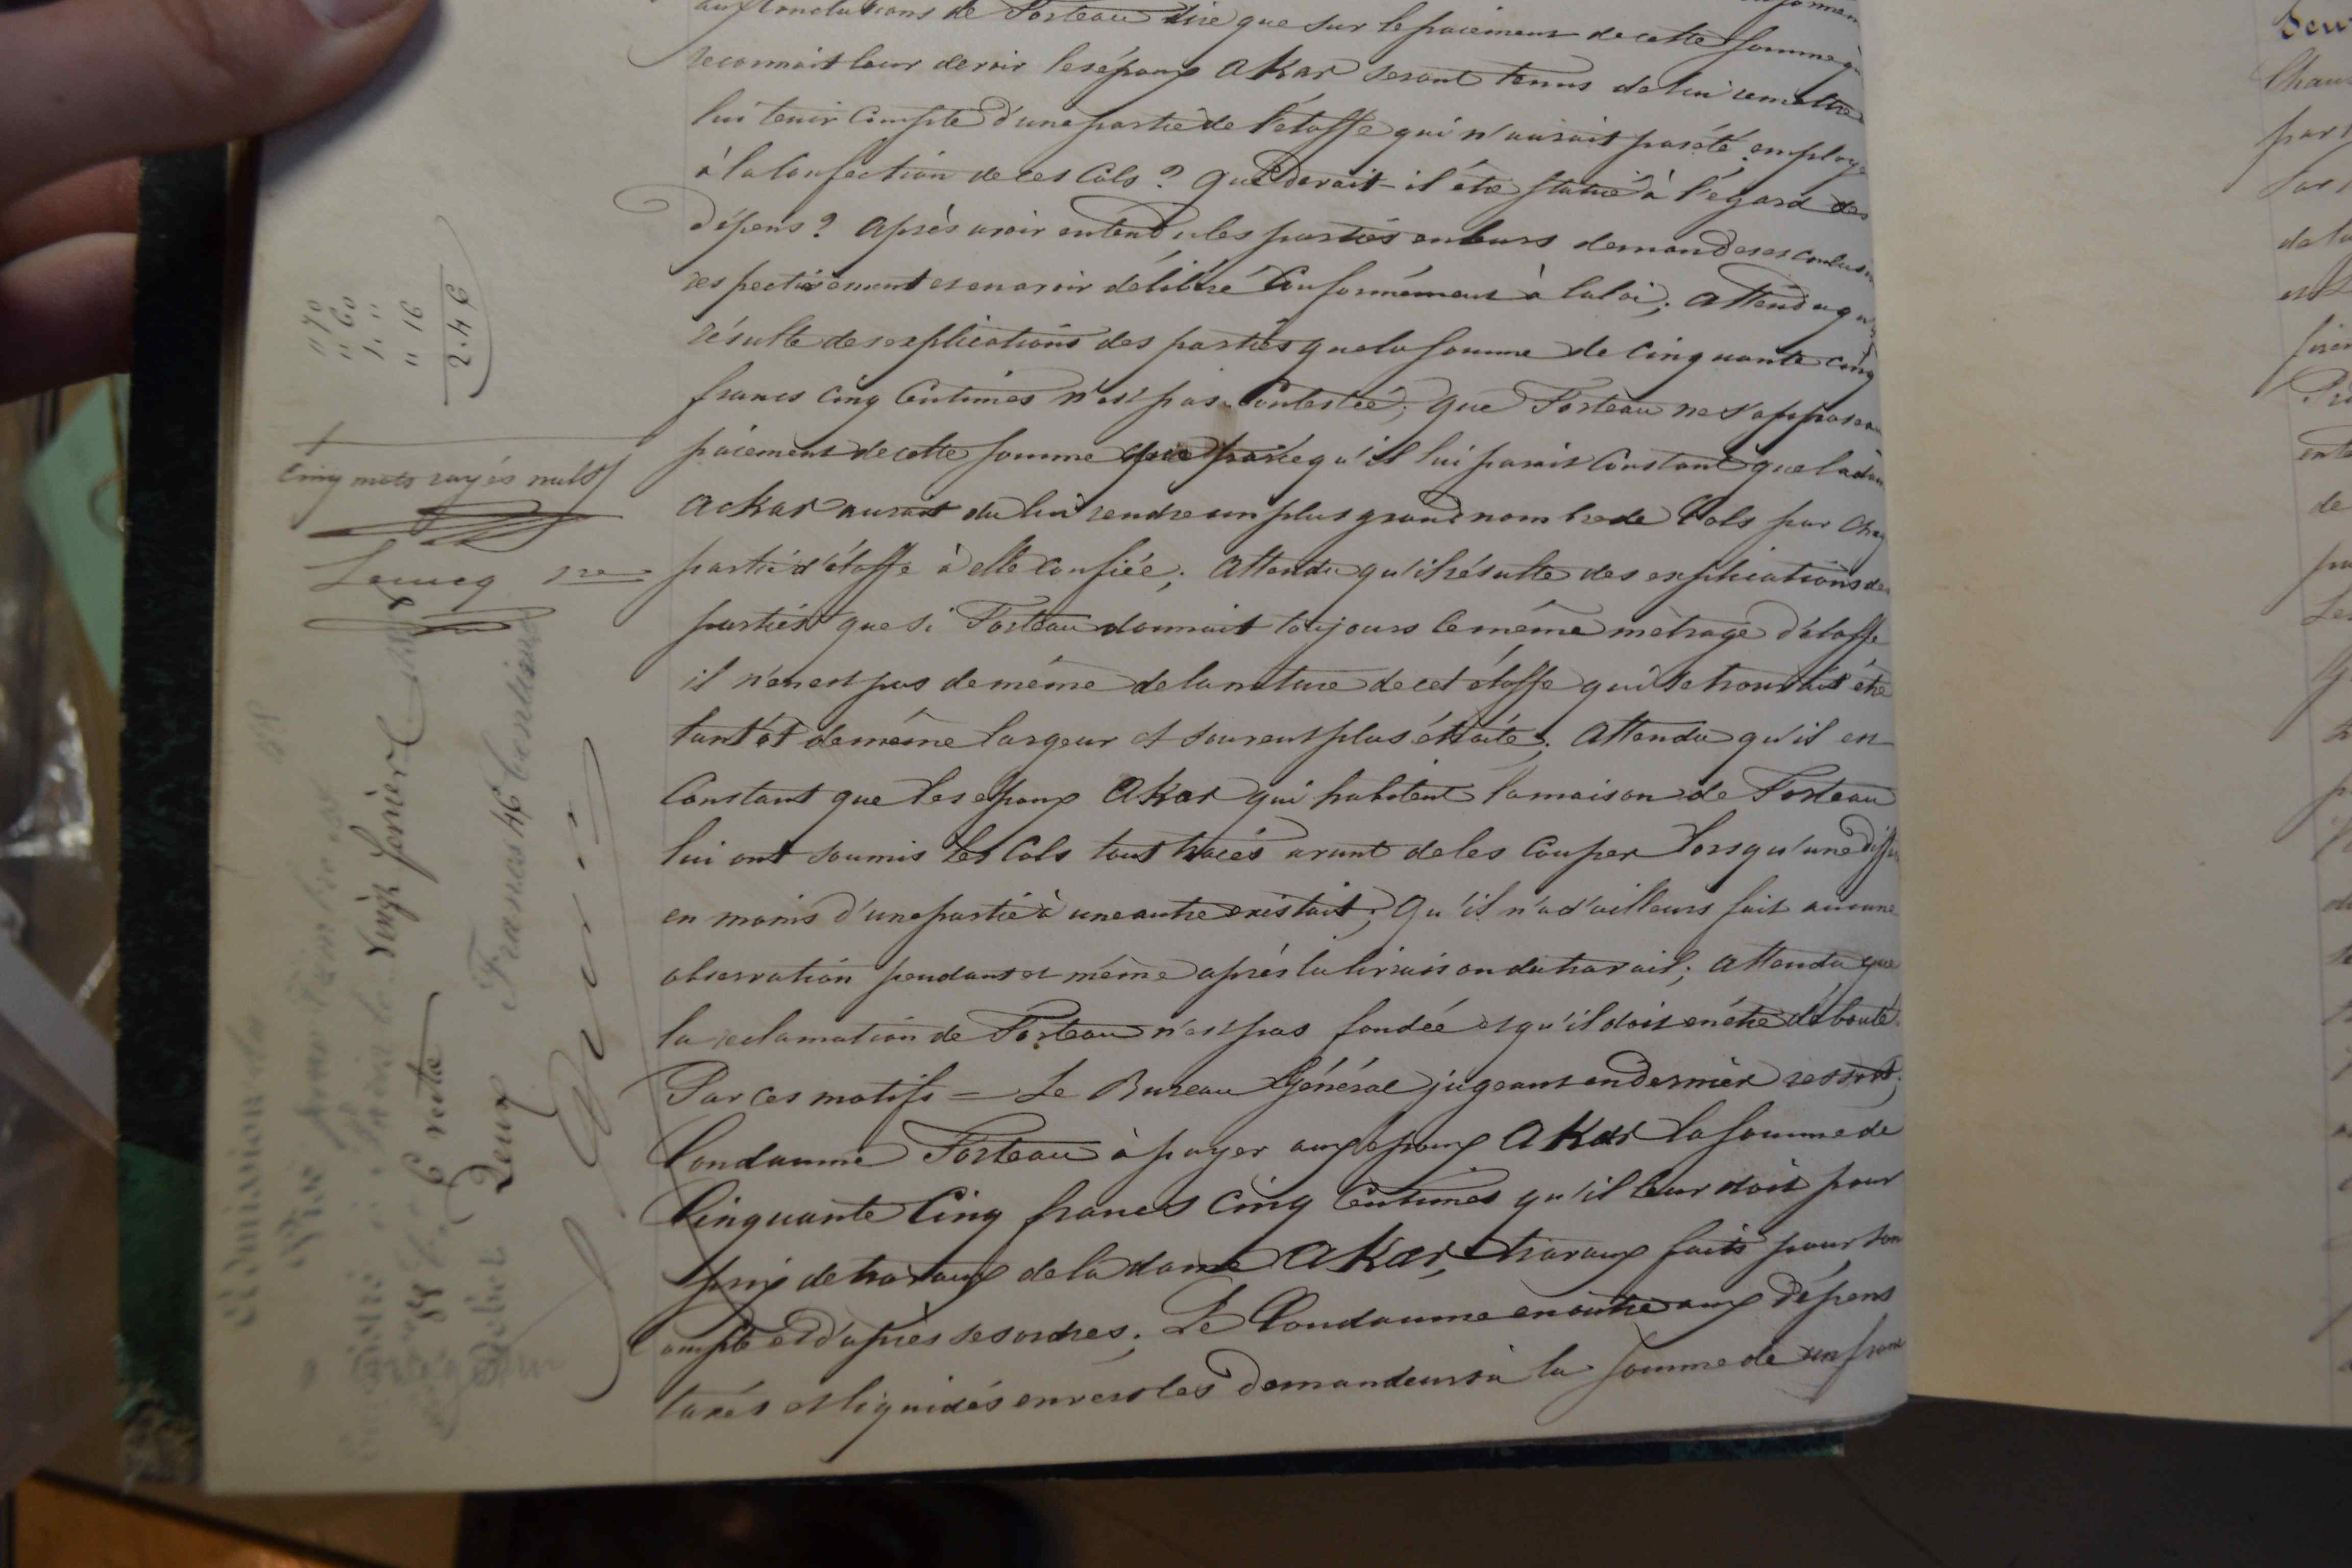 aux Conclusions de Forteau dire que sur le paiement de cette somme qu
reconnait leur devoir les époux Akar seront tenus de lui remettre
lui tenir Compte d'une partie de l'étoffe qui n'aurait pas été employé
à la Confection de ces Cols ? Que devait-il être statué à l'égard des
dépens ? Après avoir entendu les parties en leurs demandes et conclusion
respectivement et en avoir délibéré Conformément à la loi ; Attendu qu'il
résulte des explications des parties que la somme de Cinquante cinq
francs Cinq Centimes n'est pas Contestée ; Que Forteau ne s'oppose au
paiement de cette somme que parce qu'il lui parait Constant que la dam
Ackar aurait du lui rendre un plus grand nombre de Cols par Chaq
partie d'étoffe à elle Confiée ; Attendu qu'il résulte des explications des
parties que si Forteau donnait toujours le même métrage d'étoffe
il n'en est pas de même de la nature de cet étoffe qui se trouvait être
tantôt de même largeur et souvent plus étroite ; Attendu qu'il est
Constant que les époux Akar qui habitent la maison de Forteau
lui ont soumis les Cols tout tracés avant de les Couper lorsqu'une diffé
en moins d'une partie à une autre existait ; Qu'il n'a d'ailleurs fait aucune
observation pendant et même après la livraison du travail ; Attendu que
la réclamation de Forteau n'est pas fondée et qu'il doit en être débouté
Par ces motifs = Le Bureau Général jugeant en dernier ressort ;
Condamne Forteau à payer aux époux Akar la somme de
Cinquante Cinq francs Cinq Centimes qu'il leur doit pour
prix de travaux de la dame Akar, travaux faits pour son
compte et d'après ses ordres ; Le Condamne en outre aux dépens
taxés et liquidés envers les demandeurs à la somme de un franc
" 70
" 60
1. "
" 16
2.46
Cinq mots rayés nuls
Lecucq
vingt janvier
88
C recto
Deux Francs 46 Centimes
Débet